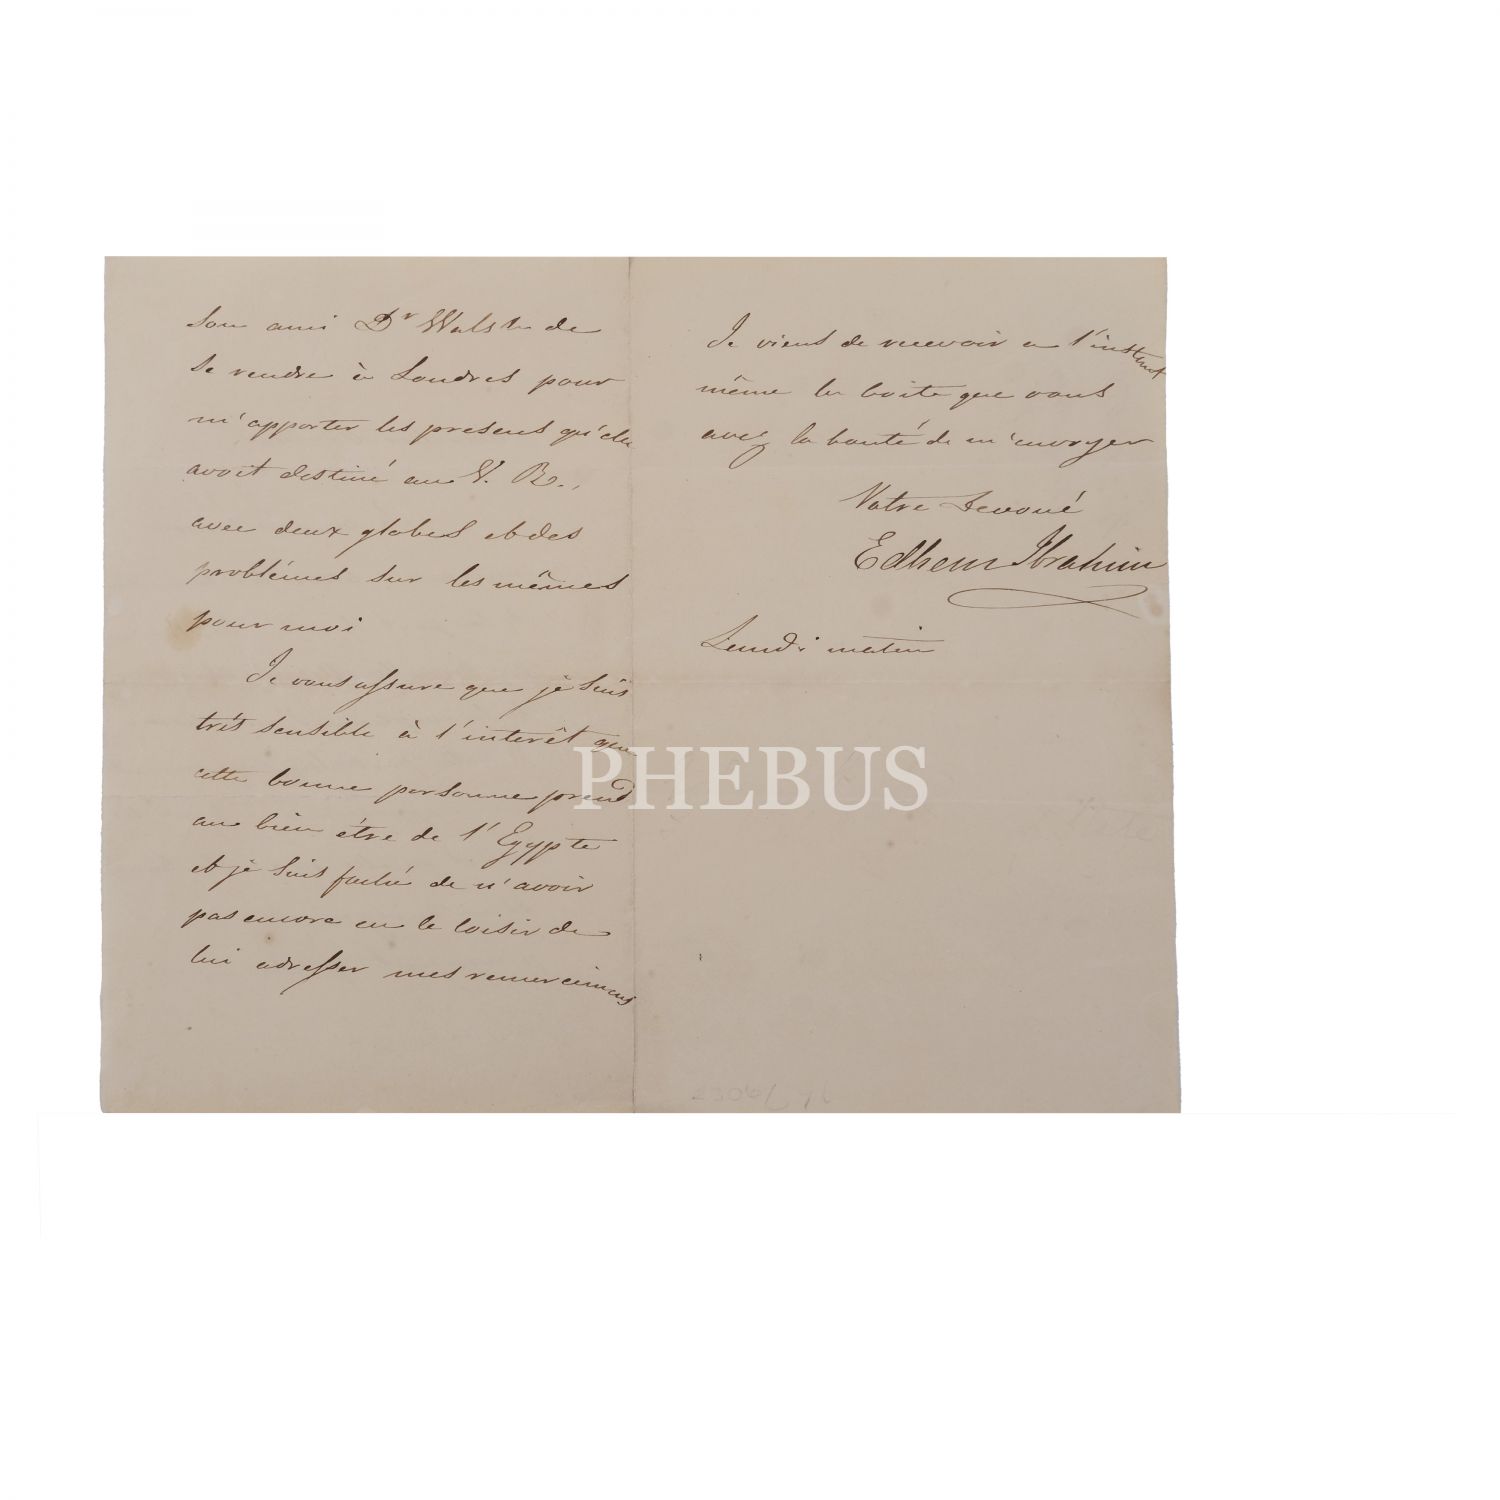 son ami Dr Walsh de
se rendre à Londres pour
m'apporter les presens qu'elle
avoit destiné au V. R.,
avec deux globes et des
problémes sur les mêmes
pour moi
Je vous assure que je suis
trés sensible à l'interêt que
cette bonne personne prend
au bien être de l'Egypte
et je suis faché de n'avoir
pas encore eu le loisir de
lui adresser mes remercimens
Je viens de recevoir a l'instant
même la boite que vous
avez la bonté de m'envoyer
Votre Devoué
Edhem Ibrahim
Lundi matin
PHEBUS